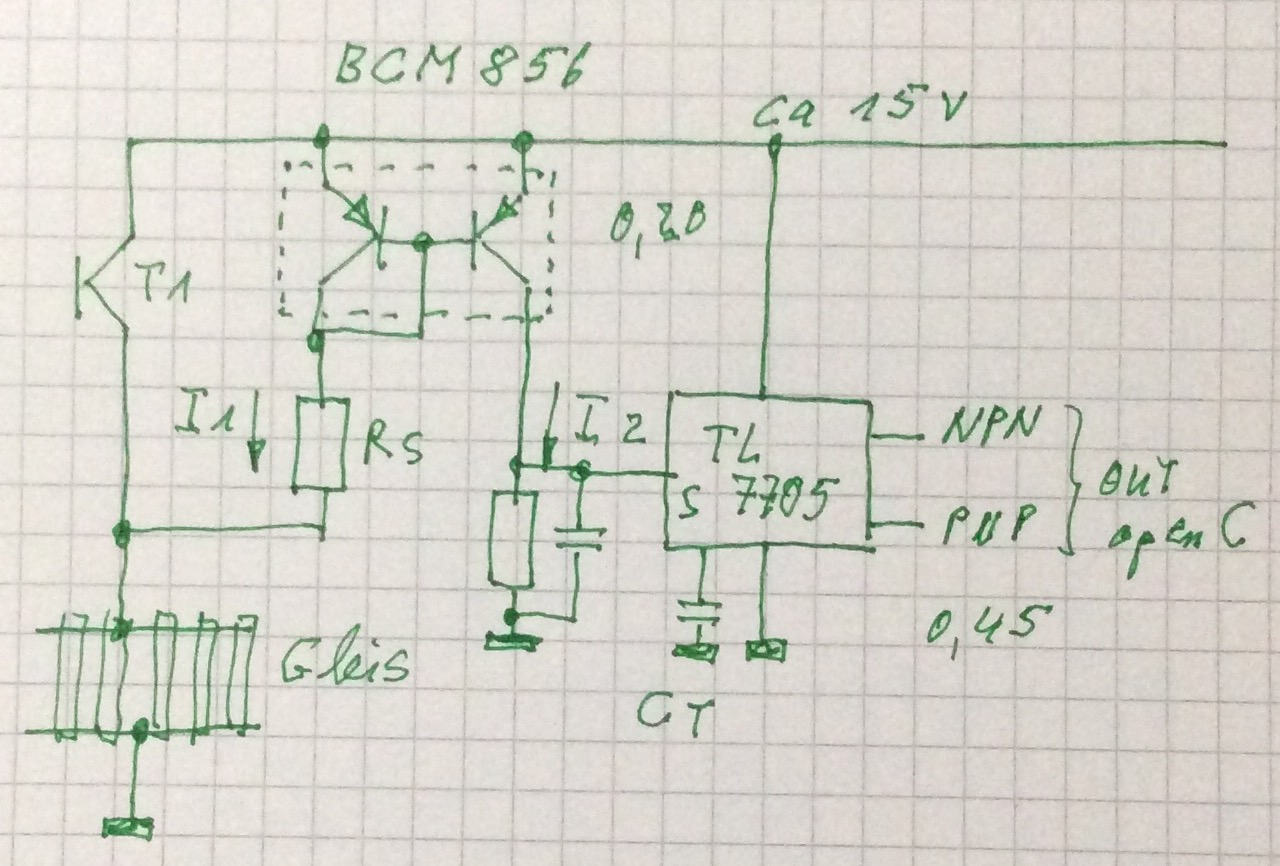 BCM 856
Ca 15 V
0,20
T1
I1
RS
I2
TL
7705
S
NPN
PNP
OUT
open C
0,45
Gleis
CT